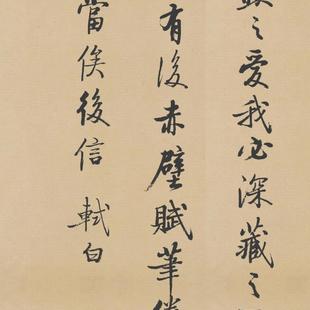 之愛我必深藏之
有後赤壁賦筆倦
當俟後信 軾白